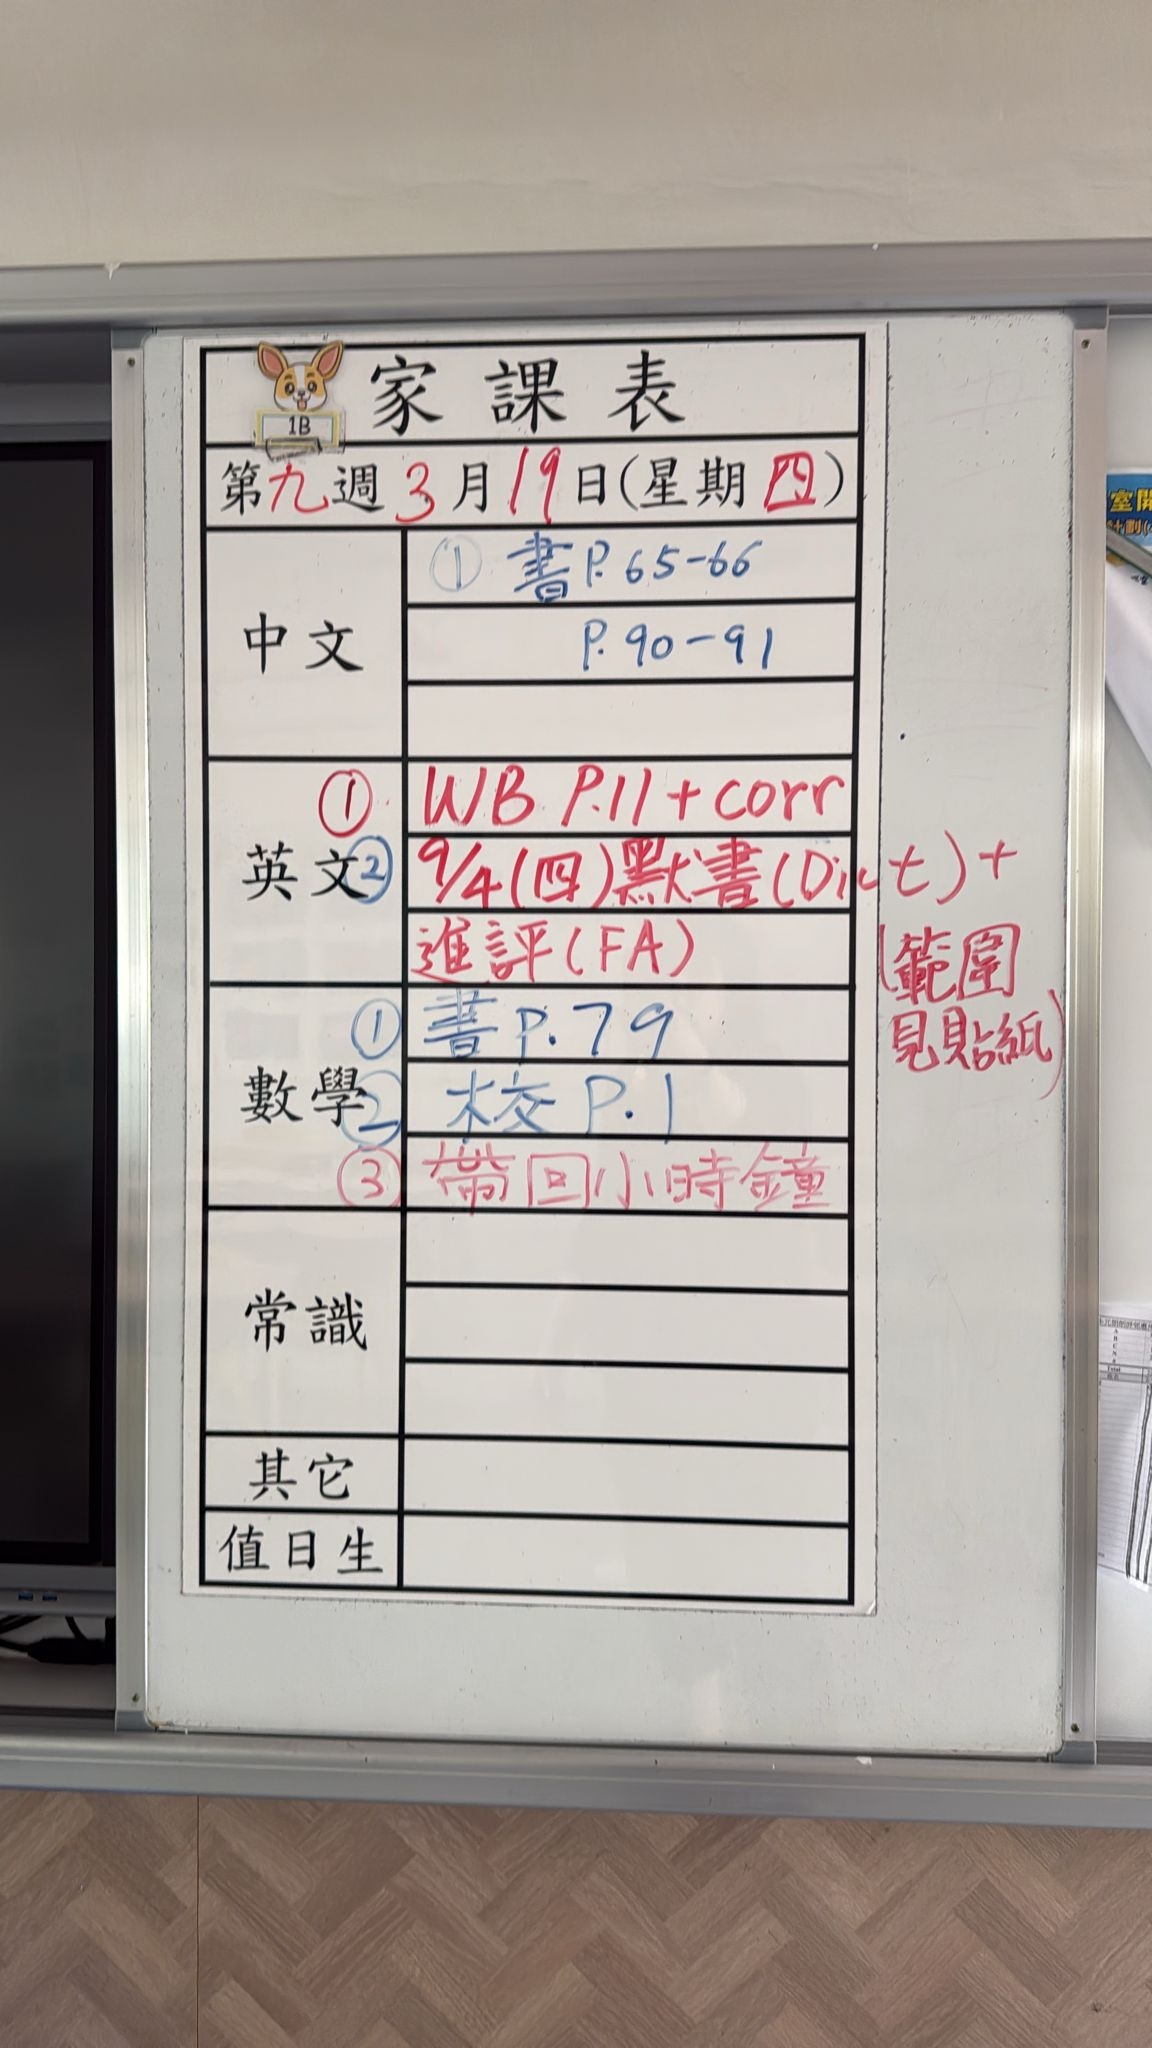 家課表
1B
第九週3月19日(星期四)
中文
① 書P.65-66
P.90-91
英文
① WB P.11+corr
② 9/4(四)默書(Dict)+
進評(FA)
(範圍
見貼紙)
數學
① 書P.79
② 校P.1
③ 帶回小時鐘
常識
其它
值日生